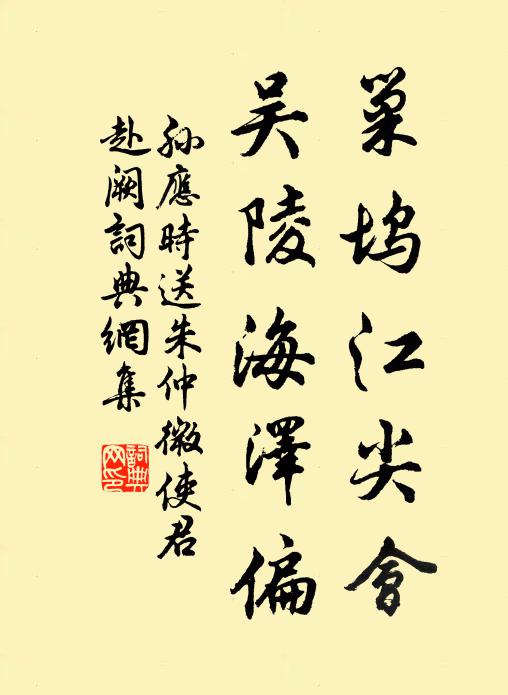 巢塢江尖會
吳陵海澤偏
孫應時送朱仲微使君
赴闕詞典網集
詞典網印